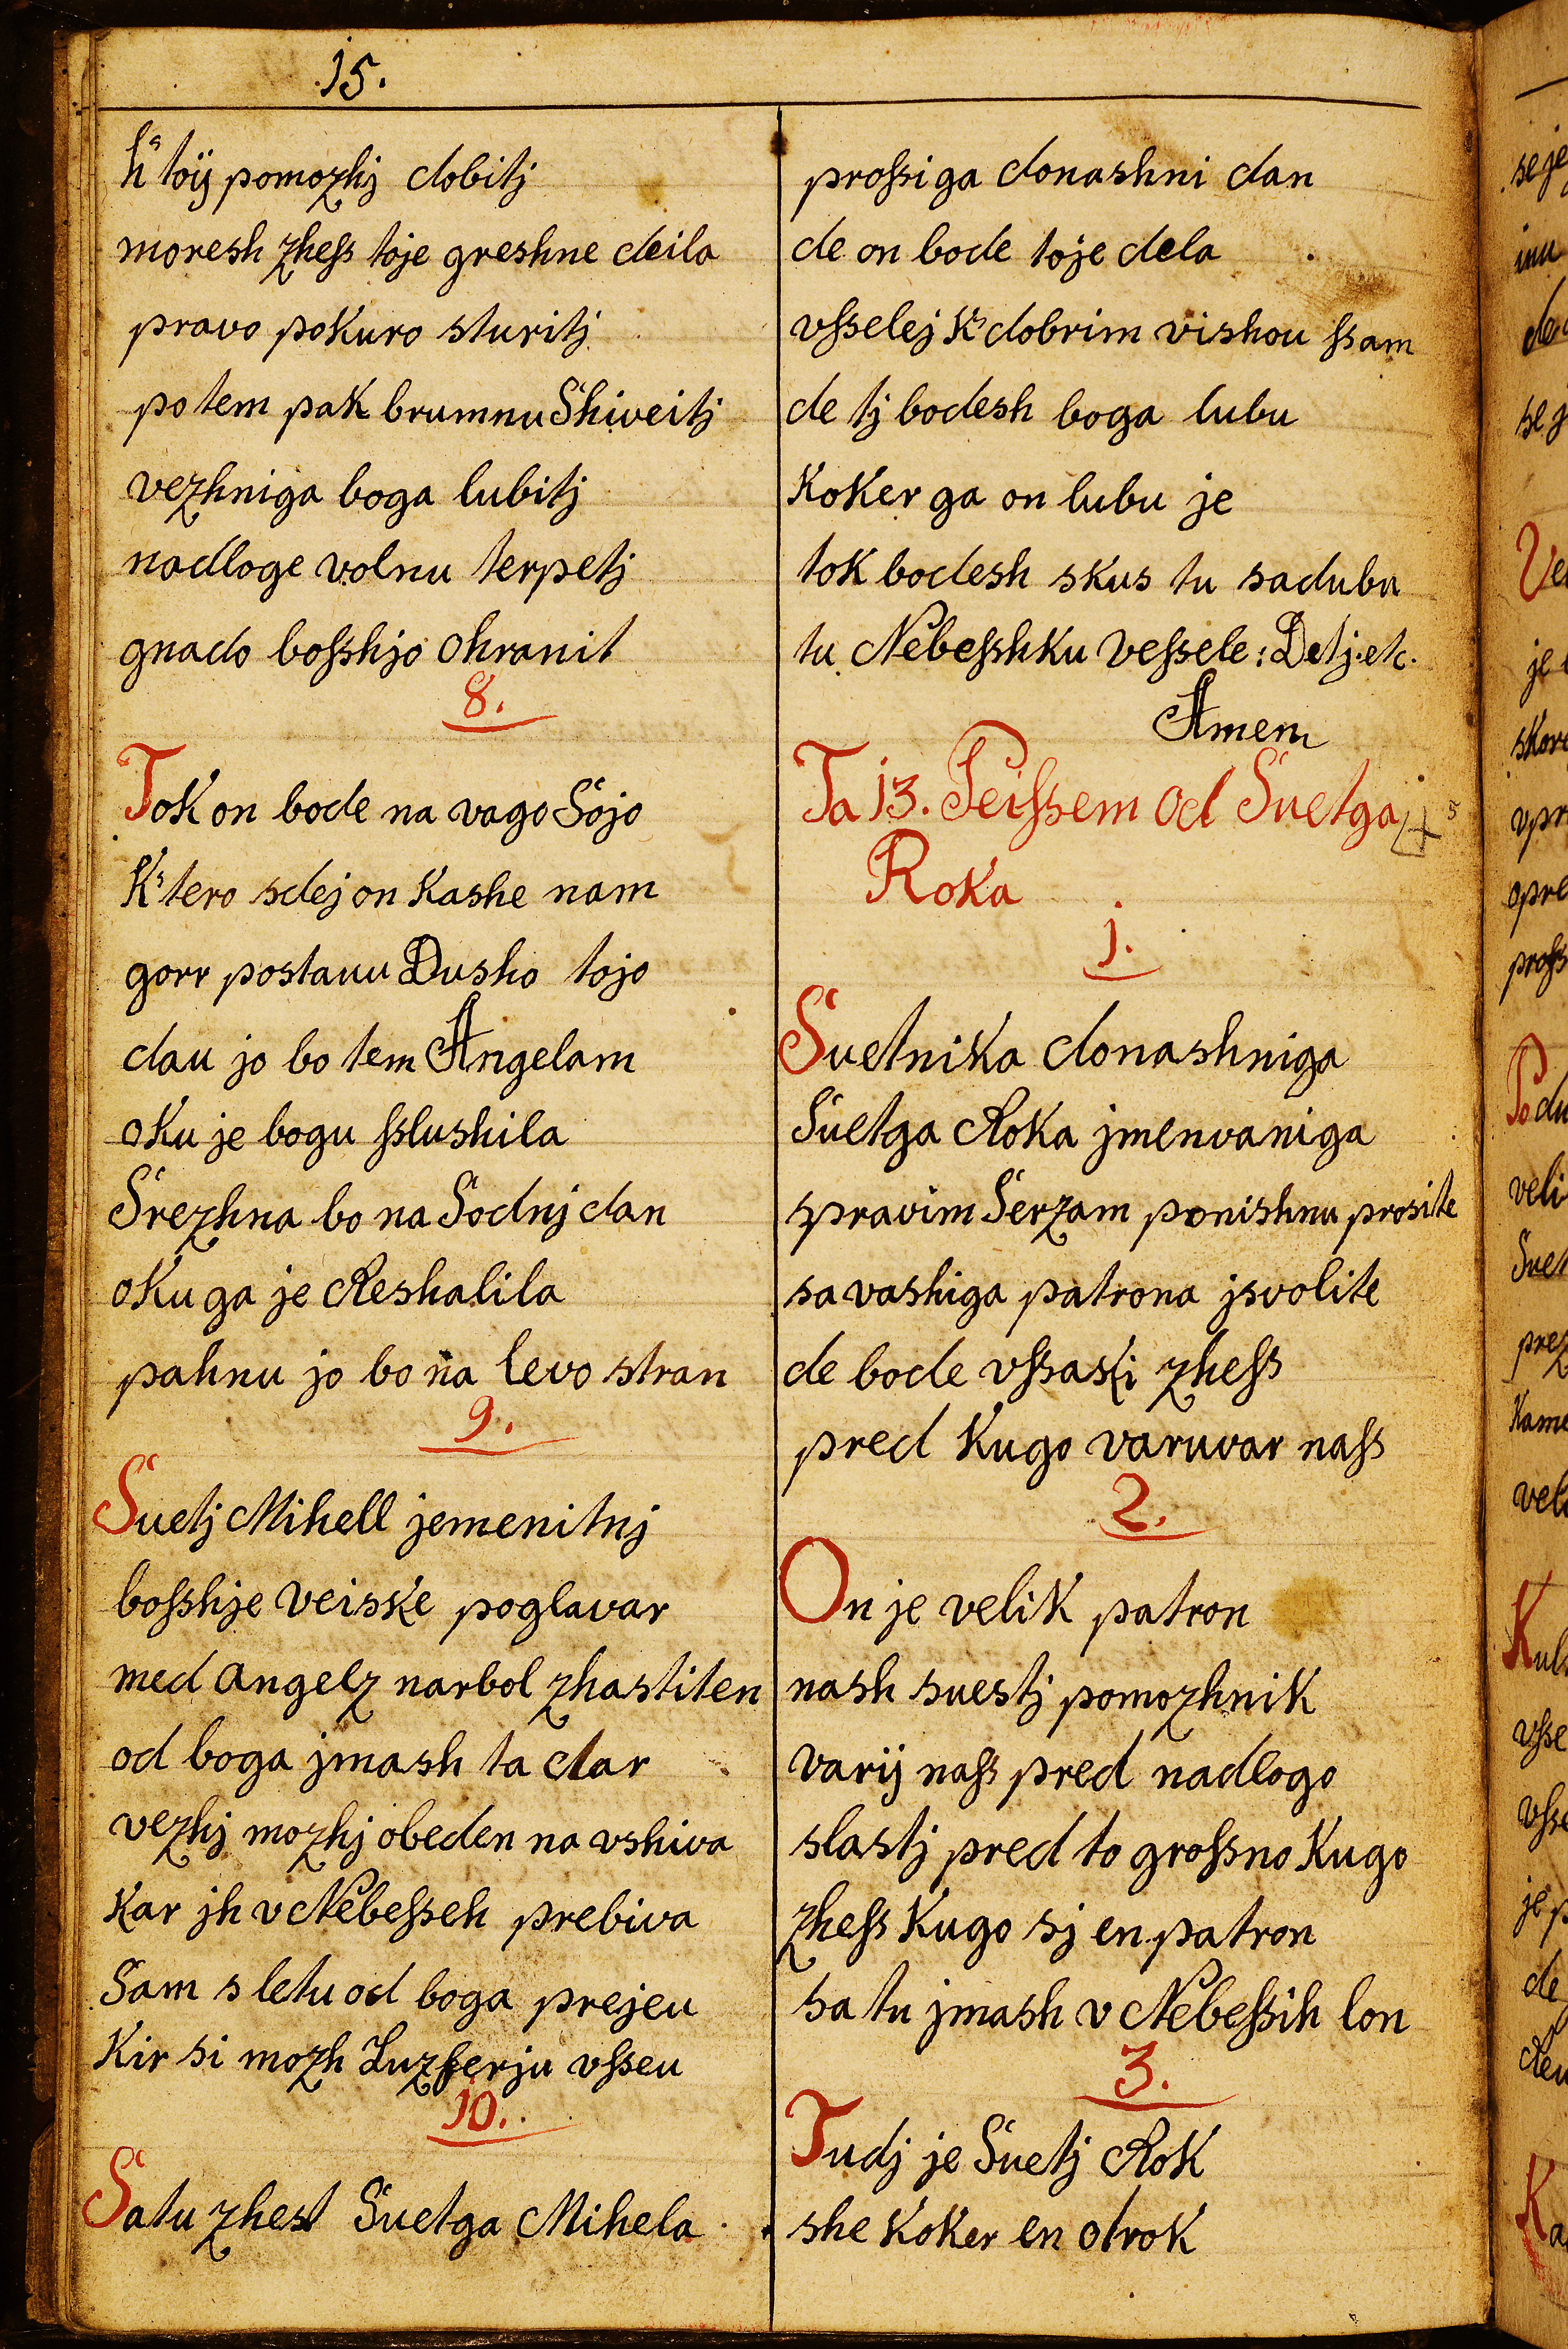 15.
h' toÿ pomozhj dobitj
moresh zhefs toje greshne deila
pravo pokuro sturitj
potem pak brumnu Shiveitj
vezhniga boga lubitj
nadloge volnu terpetj
gnado bofshjo ohranit
8.
Tok on bode na vago Sojo
K' tero sdej on kashe nam
gorr postauu Dusho tojo
dau jo bo tem Angelam
oku je bogu fslushila
Srezhna bo na Sodnj dan
oku ga je Reshalila
pahnu jo bo na levo stran
9.
Suetj Mihell jemenitnj
bofshje veiske poglavar
med angelz narbol zhastiten
od boga jmash ta dar
vezhj mozhj obeden na vshiva
Kar jh v Nebefseh prebiva
Sam s letu od boga prejeu
Kir si mozh Luzferju vfseu
10.
Satu zhest Suetga Mihela
profsi ga donashni dan
de on bode toje dela
vfselej K' dobrim vishou fsam
de tj bodesh boga lubu
Koker ga on lubu je
tok bodesh skus tu sadubu
tu Nebefshku vefsele: De tj. etc.
Amem
Ta 13. Peifsem od Suetga
Roka
j.
Suetnika donashniga
Suetga Roka jmenvaniga
spravim Serzam ponishnu prosite
sa vashiga patrona jsvolite
de bode vfsasti zhefs
pred Kugo varuvar nafs
2.
On je velik patron
nash suestj pomozhnik
varij nafs pred nadlogo
slastj pred to grofsno Kugo
zhefs Kugo sj en patron
sa tu jmash v Nebefsih lon
3.
Tudj je Suetj Rok
she koker en otrok